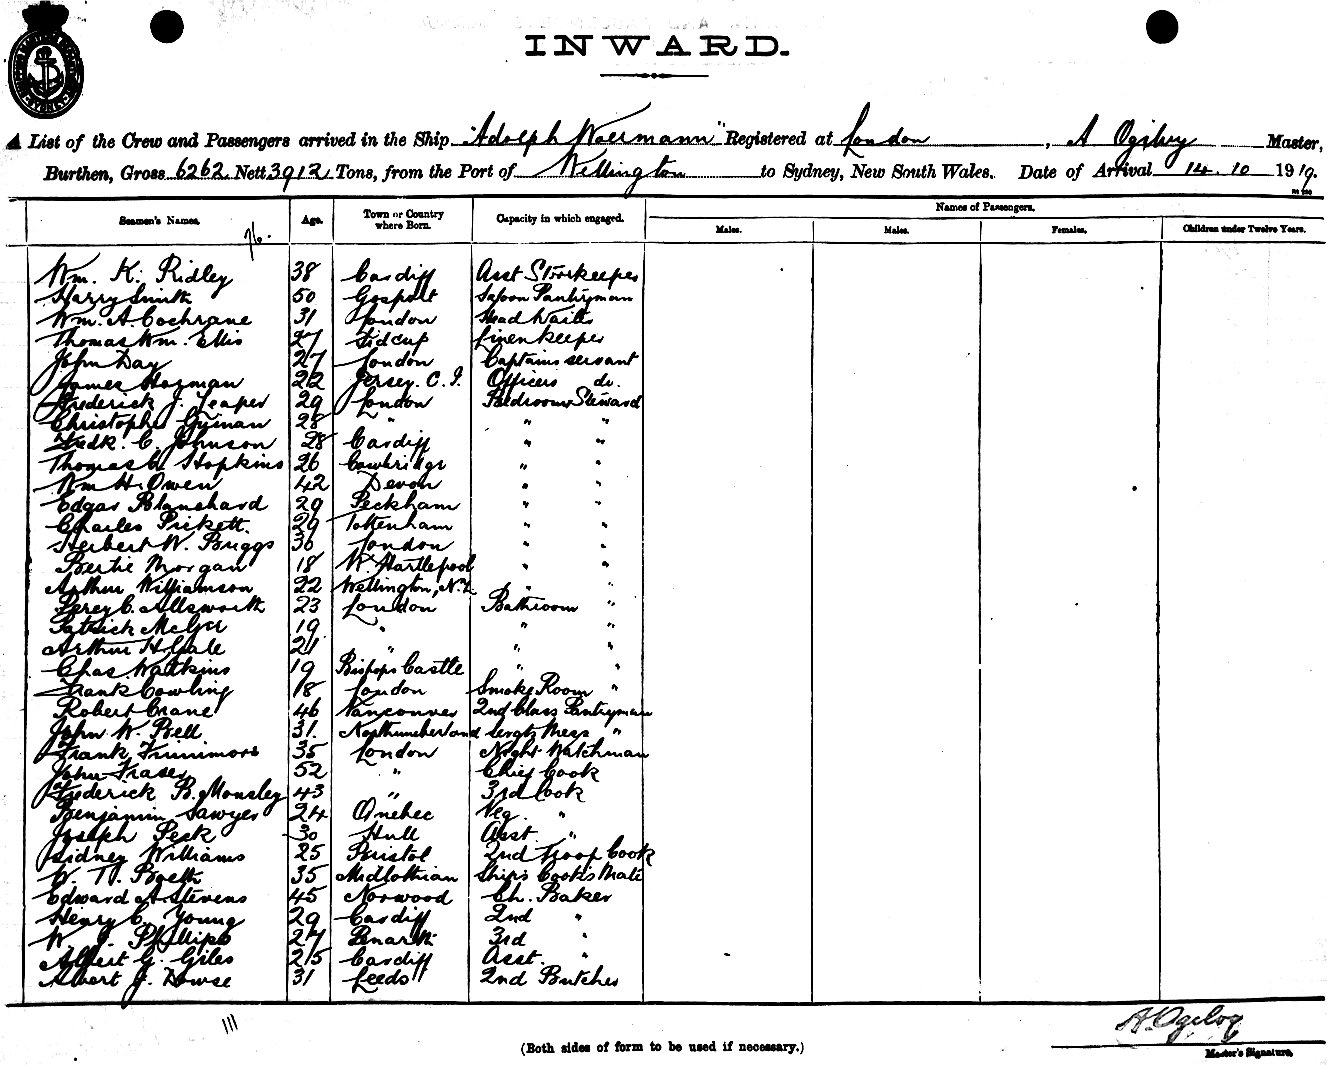 INWARD.
A List of the Crew and Passengers arrived in the Ship "Adolph Woermann" Registered at London, A Ogilvy Master,
Burthen, Gross 6262 Nett 3912 Tons, from the Port of Wellington to Sydney, New South Wales. Date of Arrival 14.10 1919.
Names of Passengers.
Seamen's Names. Age. Town or Country where Born. Capacity in which engaged. Males. Males. Females. Children under Twelve Years.
Wm. K. Ridley 38 Cardiff Asst Storekeeper
Harry Smith 50 Gosport Saloon Pantryman
Wm. A. Cochrane 31 London Head Waiter
Thomas Wm. Ellis 27 Sidcup Linenkeeper
John Day 27 London Captains servant
James Hozman 22 Jersey. C. I. Officers do.
Frederick J. Leaper 29 London Bedroom Steward
Christopher Gyman 28 " " "
Fredk. C. Johnson 28 Cardiff " "
Thomas Hopkins 26 Cowbridge " "
Wm H. Owen 42 Devon " "
Edgar Blanchard 29 Peckham " "
Charles Pickett. 29 Tottenham " "
Herbert W. Briggs 36 London " "
Bertie Morgan 18 W. Hartlepool " "
Arthur Williamson 22 Wellington, N.Z " "
Percy C. Allsworth 23 London Bathroom "
Patrick McGer 19 " " "
Arthur H. Gale 21 " " "
Chas. Watkins 19 Bishops Castle " "
Frank Cowling 18 London Smoke Room "
Robert Crane 46 Vancouver 2nd Class Pantryman
John W. Bell 31. Northumberland Sergts Mess "
Frank Finnimore 35 London Night Watchman
John Fraser 52 " Chief Cook
Frederick B. Mousley 43 " 3rd Cook
Benjamin Sawyer 24 Quebec Veg. "
Joseph Peck 30 Hull Asst. "
Sidney Williams 25 Bristol 2nd Troop Cook
W. 35 Midlothian Ships Cook's Mate
Edward A Stevens 45 Norwood Ch. Baker
Henry C. Young 29 Cardiff 2nd "
W. J. Phillips 27 Penarth 3rd "
Albert G. Giles 25 Cardiff Asst. "
Albert J. Dowse 31 Leeds 2nd Butcher
A. Ogilvy
Master's Signature.
(Both sides of form to be used if necessary.)